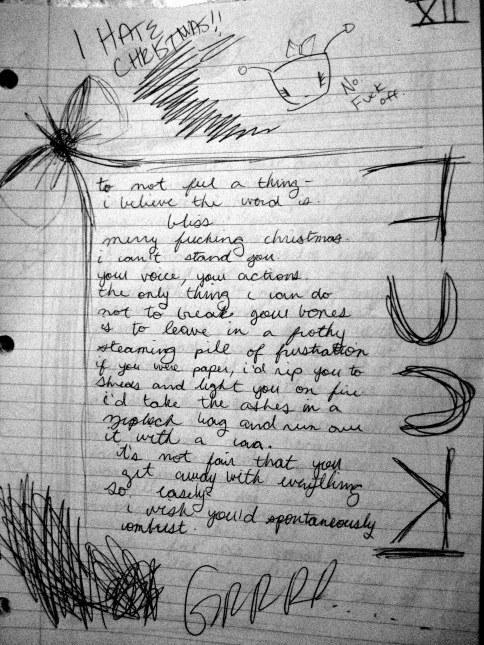 I HATE
CHRISTMAS!!
No
Fuck
off.
XII
to not feel a thing-
i believe the word is
bliss
merry fucking christmas.
i can't stand you.
your voice, your actions.
the only thing i can do
not to break your bones
is to leave in a frothy
steaming pile of frustration
if you were paper, i'd rip you to
shreds and light you on fire
i'd take the ashes in a
ziplock bag and run over
it with a car.
it's not fair that you
get away with everything
so easily
i wish you'd spontaneously
combust.
FUCK
GRRRR.....